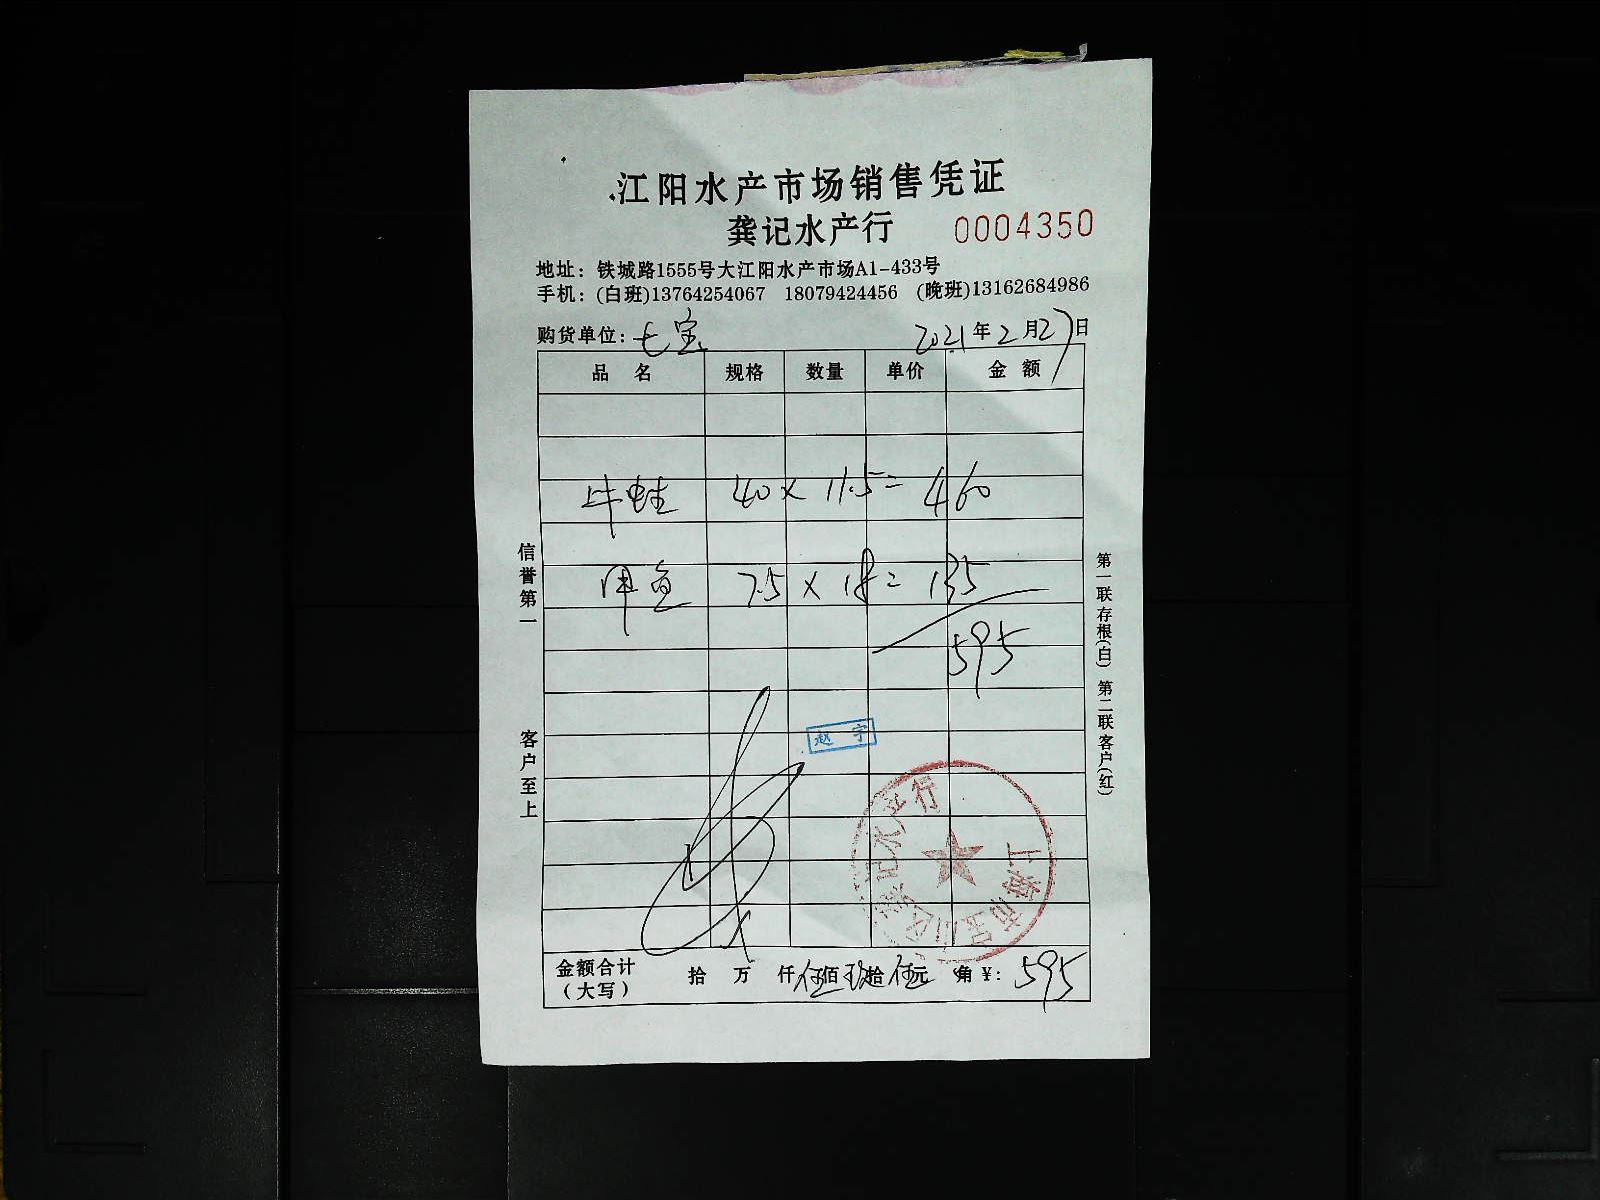 江阳水产市场销售凭证
龚记水产行 0004350
地址：铁城路1555号大江阳水产市场A1-433号
手机：(白班)13764254067 18079424456 (晚班)13162684986
购货单位：七宝 2021年2月27日
品名 规格 数量 单价 金额
牛蛙 40 × 11.5 = 460
甲鱼 7.5 × 18 = 135
595
信誉第一 客户至上
第一联存根(白) 第二联客户(红)
赵宇
上海市宝山区龚记水产行
金额合计（大写） 拾 万 仟 伍佰 玖拾 伍元 角 ¥：595